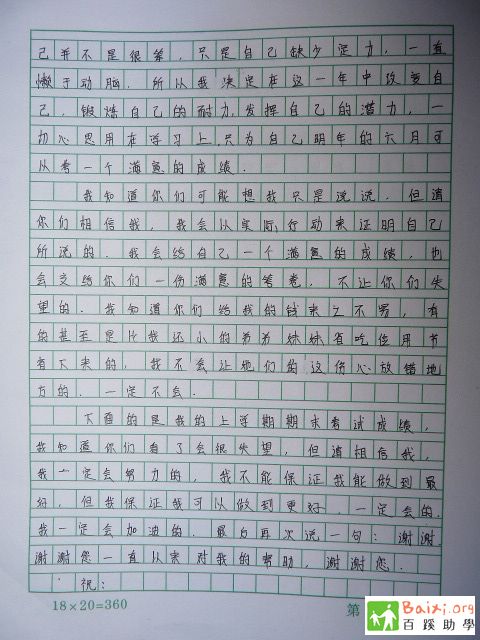 己并不是很笨，只是自己缺少定力，一直
懒于动脑。所以我决定在这一年中改变自
己，锻炼自己的耐力，发挥自己的潜力，一
切心思用在学习上，只为自己明年的六月可
以考一个满意的成绩。
我知道你们可能想我只是说说，但请
你们相信我，我会以实际行动来证明自己
所说的。我会给自己一个满意的成绩，也
会交给你们一份满意的答卷，不让你们失
望的。我知道你们给我的钱来之不易，有
的甚至是比我还小的弟弟妹妹省吃俭用节
省下来的，我不会让他们的这份心放错地
方的，一定不会。
下面的是我的上学期期末考试成绩，
我知道你们看了会很失望，但请相信我，
我一定会努力的，我不能保证我能做到最
好，但我保证我可以做到更好，一定会的。
我一定会加油的。最后再次说一句：谢谢，
谢谢您一直以来对我的帮助，谢谢您。
祝：
18×20=360
第
Baixi.org
百蹊助學